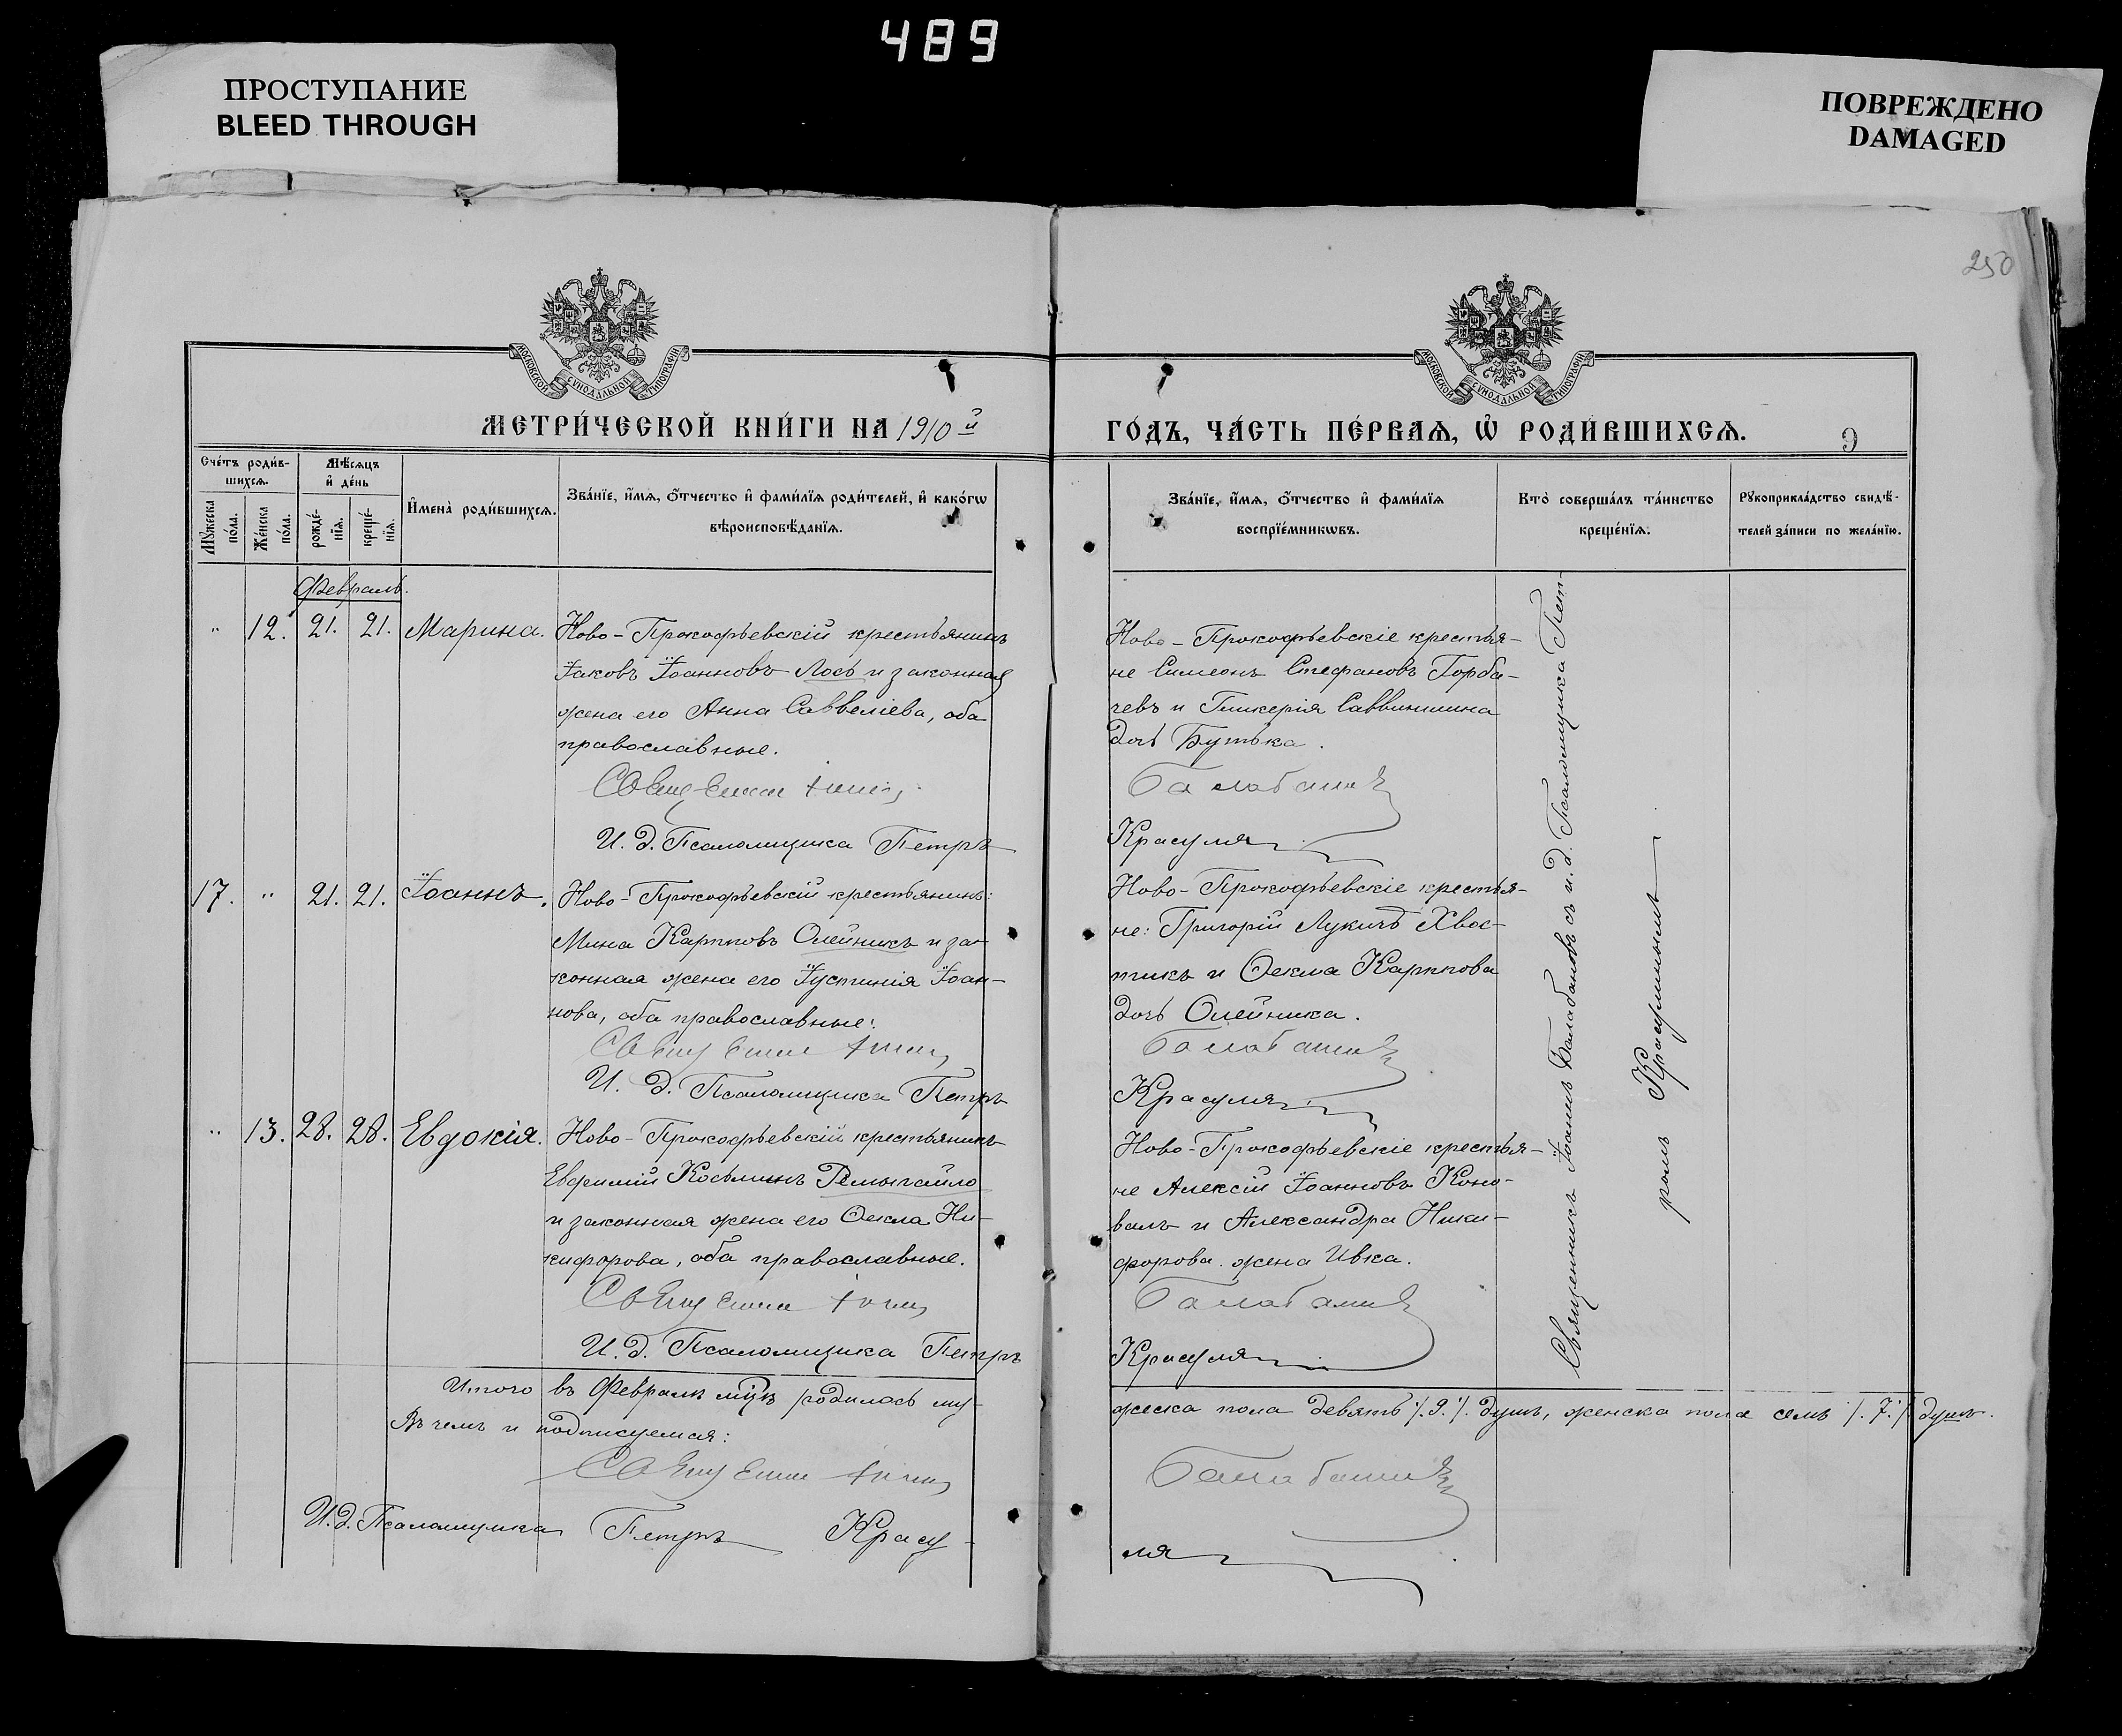 489
ПРОСТУПАНИЕ
BLEED THROUGH
ПОВРЕЖДЕНО
DAMAGED
250
МОСКОВСКОЙ СѴНОДАЛЬНОЙ ТИПОГРАФІИ
МОСКОВСКОЙ СѴНОДАЛЬНОЙ ТИПОГРАФІИ
МЕТРИ́ЧЕСКОЙ КНИ́ГИ НА 1910й
ГО́ДЪ, ЧА́СТЬ ПЕ́РВАѦ, Ѡ҆ РОДИ́ВШИХСѦ.
9
Сче́тъ роди́в-
шихсѧ.
Мѣ́сѧцъ
и҆ де́нь
Мꙋ́жеска
по́ла.
Же́нска
по́ла.
рожде́-
нїѧ.
креще́-
нїѧ.
И҆мена̀ роди́вшихсѧ.
Зва́нїе, и҆́мѧ, ѻ҆́тчество и҆ фами́лїѧ роди́телей, и҆ како́гѡ
вѣроисповѣ́данїѧ.
Зва́нїе, и҆́мѧ, ѻ҆́тчество и҆ фами́лїѧ
воспрїе́мникѡвъ.
Кто̀ соверша́лъ та́инство
креще́нїѧ.
Рꙋкоприкла́дство свидѣ́-
телей за́писи по жела́нїю.
Февраль.
" 12. 21. 21. Марина. Ново-Прокофьевскій крестьянинъ
Іаковъ Іоанновъ Лось и законная
жена его Анна Саввеліева, оба
православные.
Священникъ Іоаннъ
И. д. Псаломщика Петръ
Ново-Прокофьевскіе крестья-
не Симеонъ Стефановъ Горба-
чевъ и Гликерія Саввишнина
дочь Бутька.
Балабановъ
Красуля
17. " 21. 21. Іоаннъ. Ново-Прокофьевскій крестьянинъ:
Мина Карповъ Олейникъ и за-
конная жена его Іустинія Іоан-
нова, оба православные.
Священникъ Іоаннъ
И. д. Псаломщика Петръ
Ново-Прокофьевскіе крестья-
не: Григорій Лукичъ Хвос-
тикъ и Ѳекла Карпова
дочь Олейника.
Балабановъ
Красуля
" 13. 28. 28. Евдокія. Ново-Прокофьевскій крестьянинъ
Евфимій Косьминъ Ремыгайло
и законная жена его Ѳекла Ни-
кифорова, оба православные.
Священникъ Іоаннъ
И. д. Псаломщика Петръ
Ново-Прокофьевскіе крестья-
не Алексій Іоанновъ Коно-
валъ и Александра Ники-
форова жена Ивка.
Балабановъ
Красуля
Священникъ Іоаннъ Балабановъ съ и. д. Псаломщика Пет-
ромъ Красулинымъ
Итого въ Февралѣ мцѣ родилось му-
жеска пола девять /.9./. душъ, женска пола семь /.7./ душъ.
Въ чемъ и подписуемся:
Священникъ Іоаннъ
Балабановъ
И. д. Псаломщика Петръ Красу-
ля